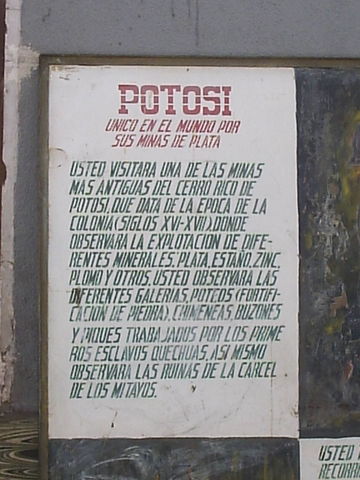 POTOSI
UNICO EN EL MUNDO POR
SUS MINAS DE PLATA
USTED VISITARA UNA DE LAS MINAS
MAS ANTIGUAS DEL CERRO RICO DE
POTOSI, QUE DATA DE LA EPOCA DE LA
COLONIA (SIGLOS XVI-XVII), DONDE
OBSERVARA LA EXPLOTACION DE DIFE-
RENTES MINERALES: PLATA, ESTAÑO, ZINC,
PLOMO Y OTROS. USTED OBSERVARA LAS
DIFERENTES GALERIAS, POTEOS (FORTIFI-
CACION DE PIEDRA), CHIMENEAS, BUZONES
Y PIQUES TRABAJADOS POR LOS PRIME
ROS ESCLAVOS QUECHUAS, ASI MISMO
OBSERVARA LAS RUINAS DE LA CARCEL
DE LOS MITAYOS.
USTED